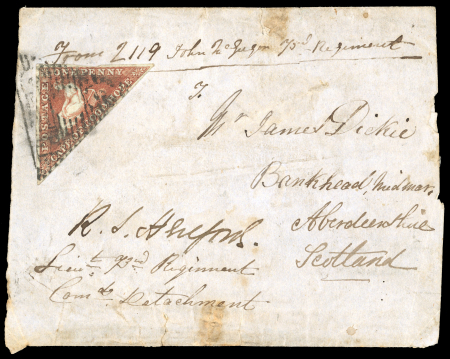 From 2119 John McGregor 73d Regiment
POSTAGE
ONE PENNY
To
Mr James Dickie
Bankhead, Midmar,
Aberdeenshire
Scotland
R. S.
Lieut. 73rd Regiment
Comdg Detachment